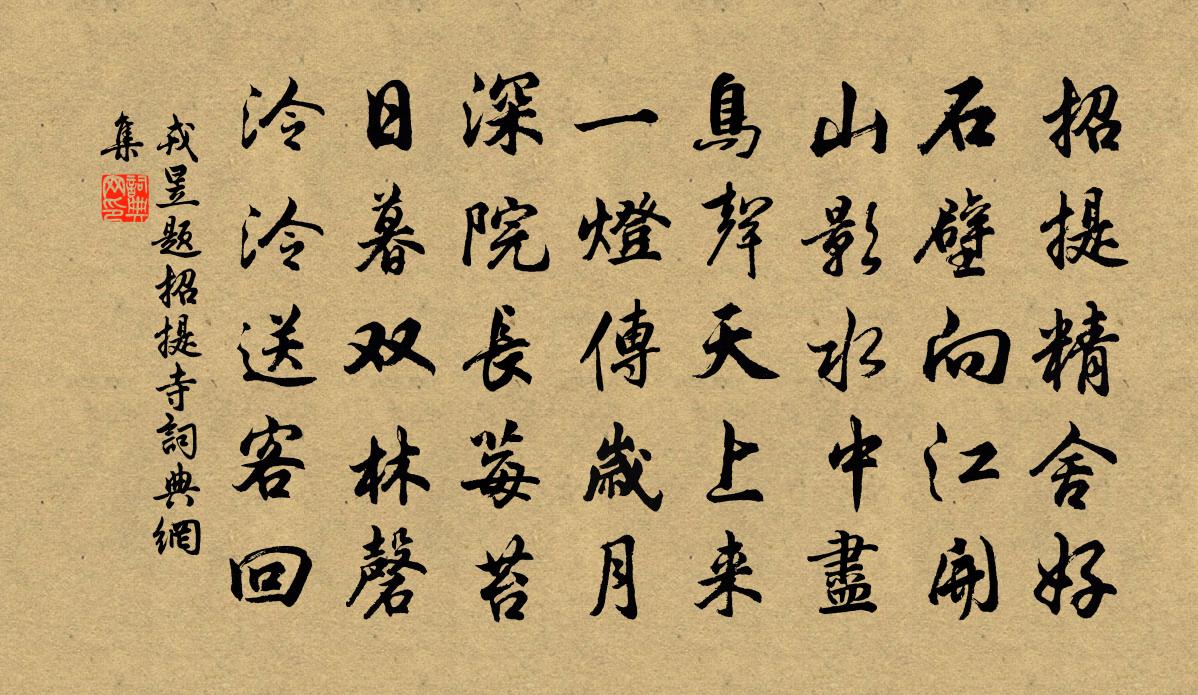 招提精舍好
石壁向江開
山影水中盡
鳥聲天上来
一燈傳歲月
深院長莓苔
日暮双林磬
泠泠送客回
戎昱题招提寺詞典網
集
詞典
网印